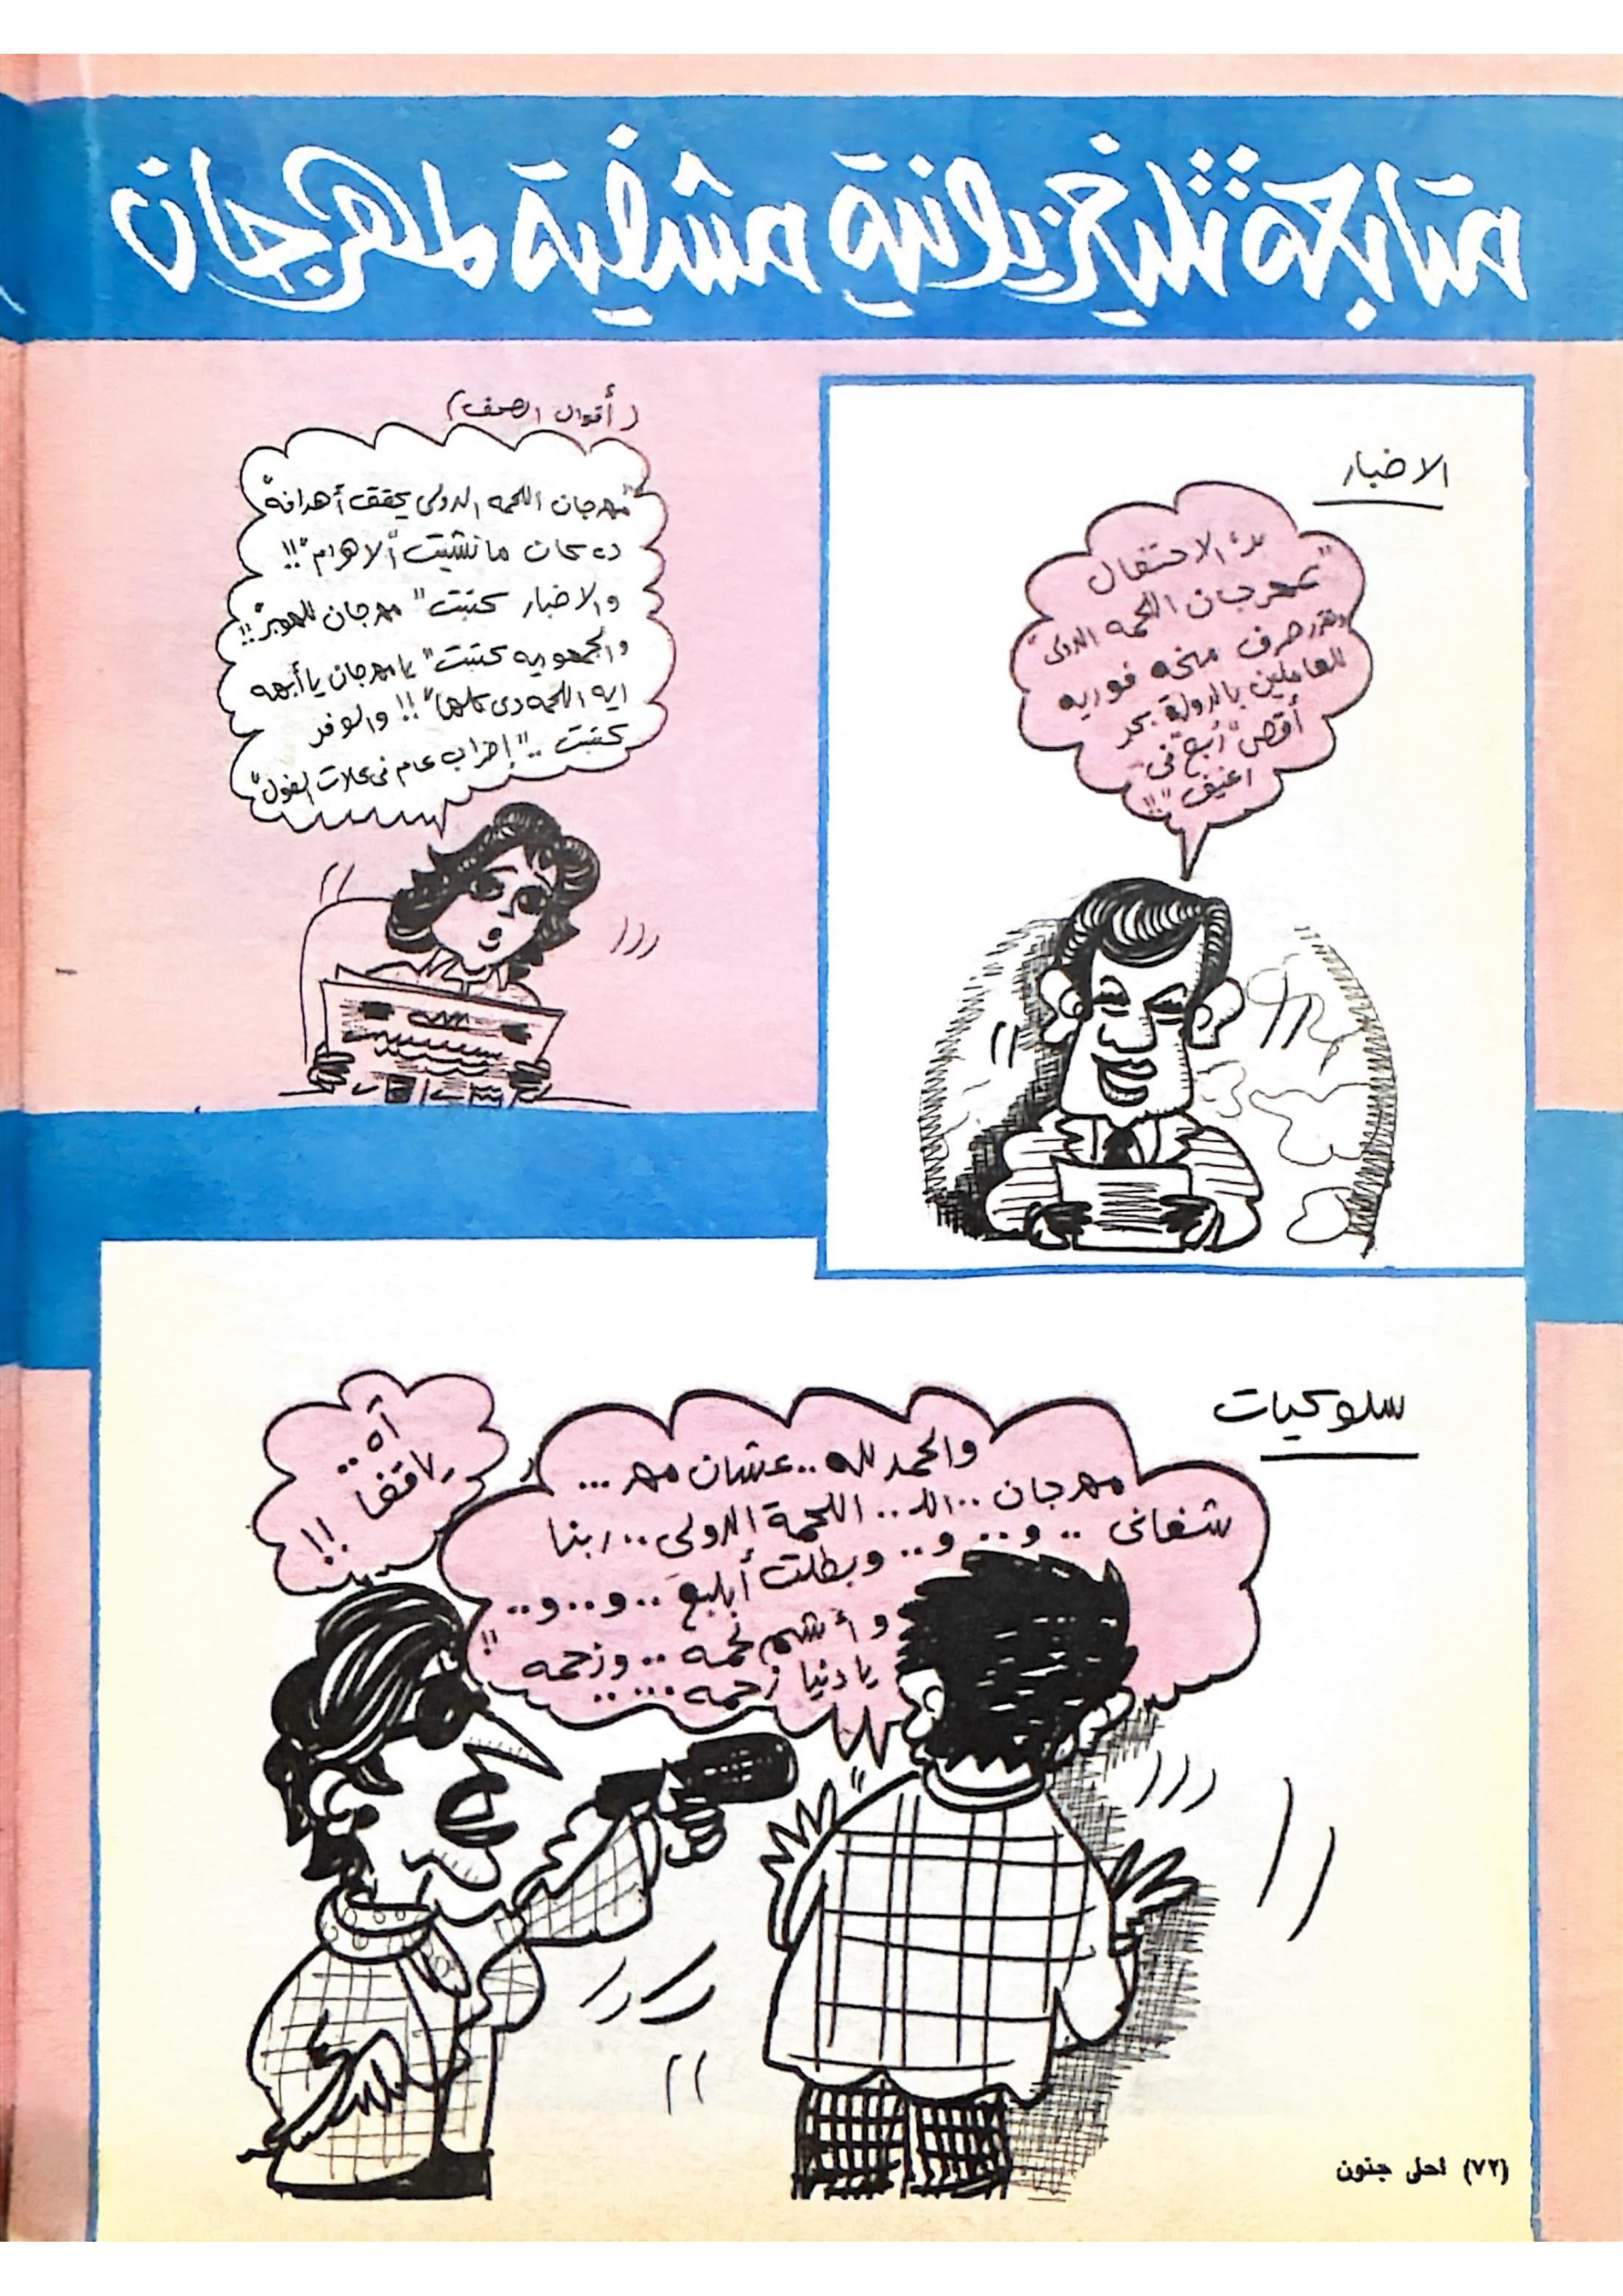 متابعة تليفزيونية مشفية لمهرجان
الاخبار
"بدء الاحتفال
بمهرجان اللحمه الدولى"
وتقرر صرف منحه فوريه
للعاملين بالدولة بحد
أقصى "ربع فى
اغنيف"..!!
(أقوال الصحف)
"مهرجان اللحمه الدولى يحقق أهدافه"
ده كان مانشيت ألاهرام"!!
والاخبار كتبت "مهرجان للهبر"!!
والجمهوريه كتبت "يا مهرجان يا أبهه
ايه اللحمه دى كلها"!! والوفد
كتبت .." إضراب عام فى محلات الفول"
سلوكيات
والحمد لله.. عشان مهر...
مهرجان.. الد.. اللحمة الدولى.. ربنا
شفانى .. و.. و.. وبطلت أبلبع.. و..و..
وأشم لحمه .. وزحمه
يا دنيا زحمه .....!!
آه..
يا قفا
!!
(٧٢) احلى جنون